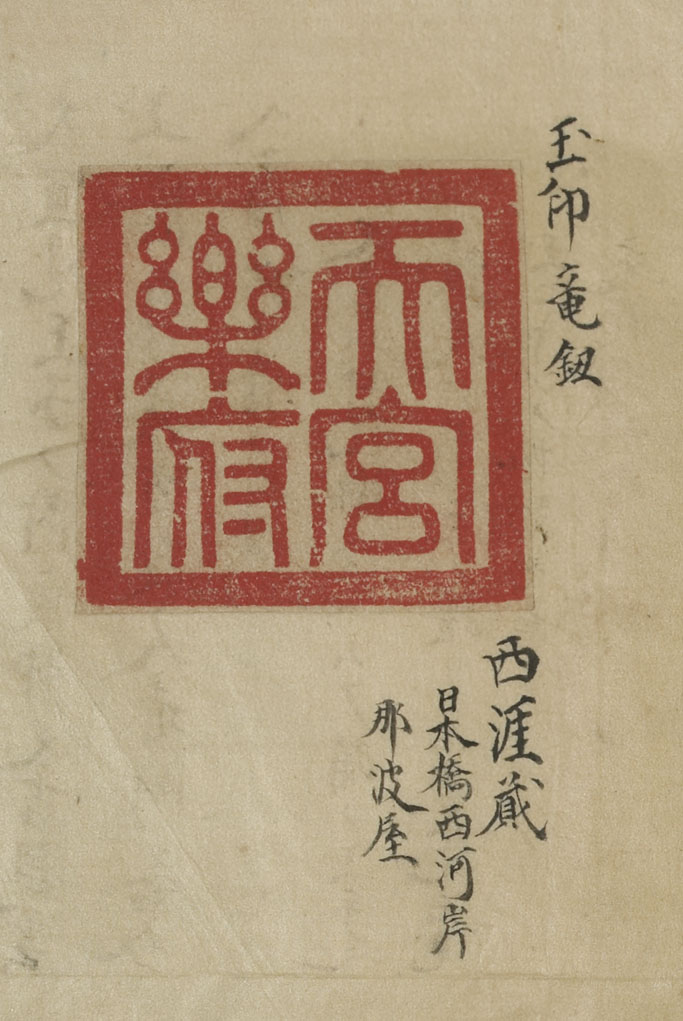 玉印竜鈕
天宮
樂府
西涯蔵
日本橋西河岸
那波屋